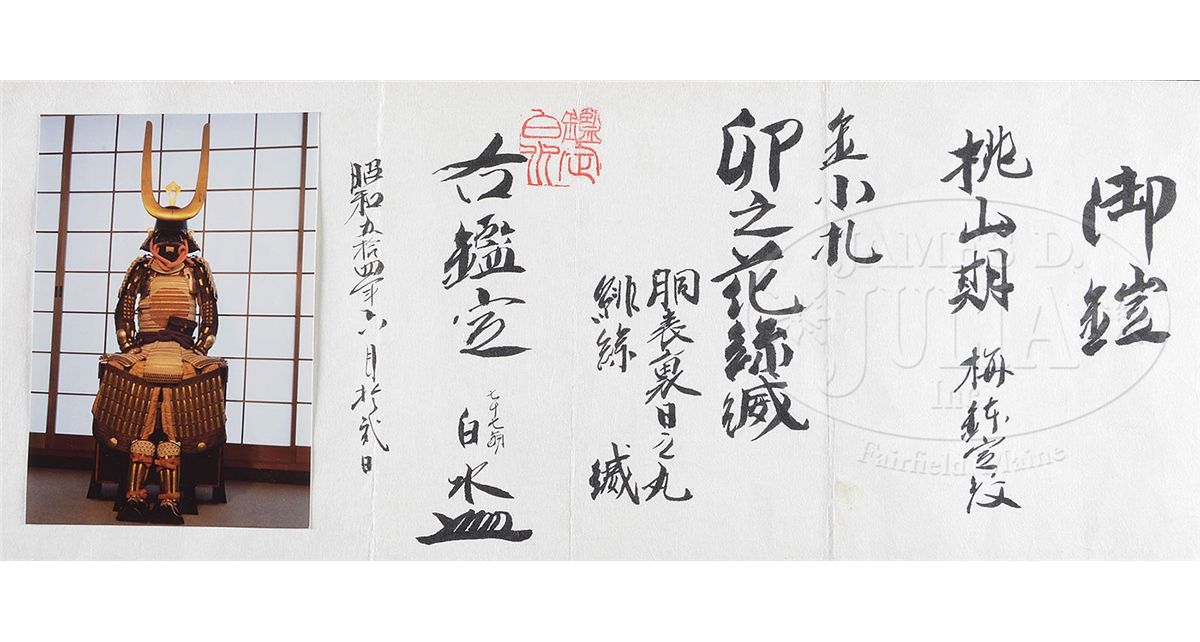 御鎧
桃山期 梅鉢定紋
金小札
卯之花絲縅
胴表裏日之丸
緋絲 縅
鑑定
白水
右鑑定
七十七翁 白水
昭和五拾四年六月拾弐日
JAMES D.
JULIA
Inc.
Fairfield, Maine